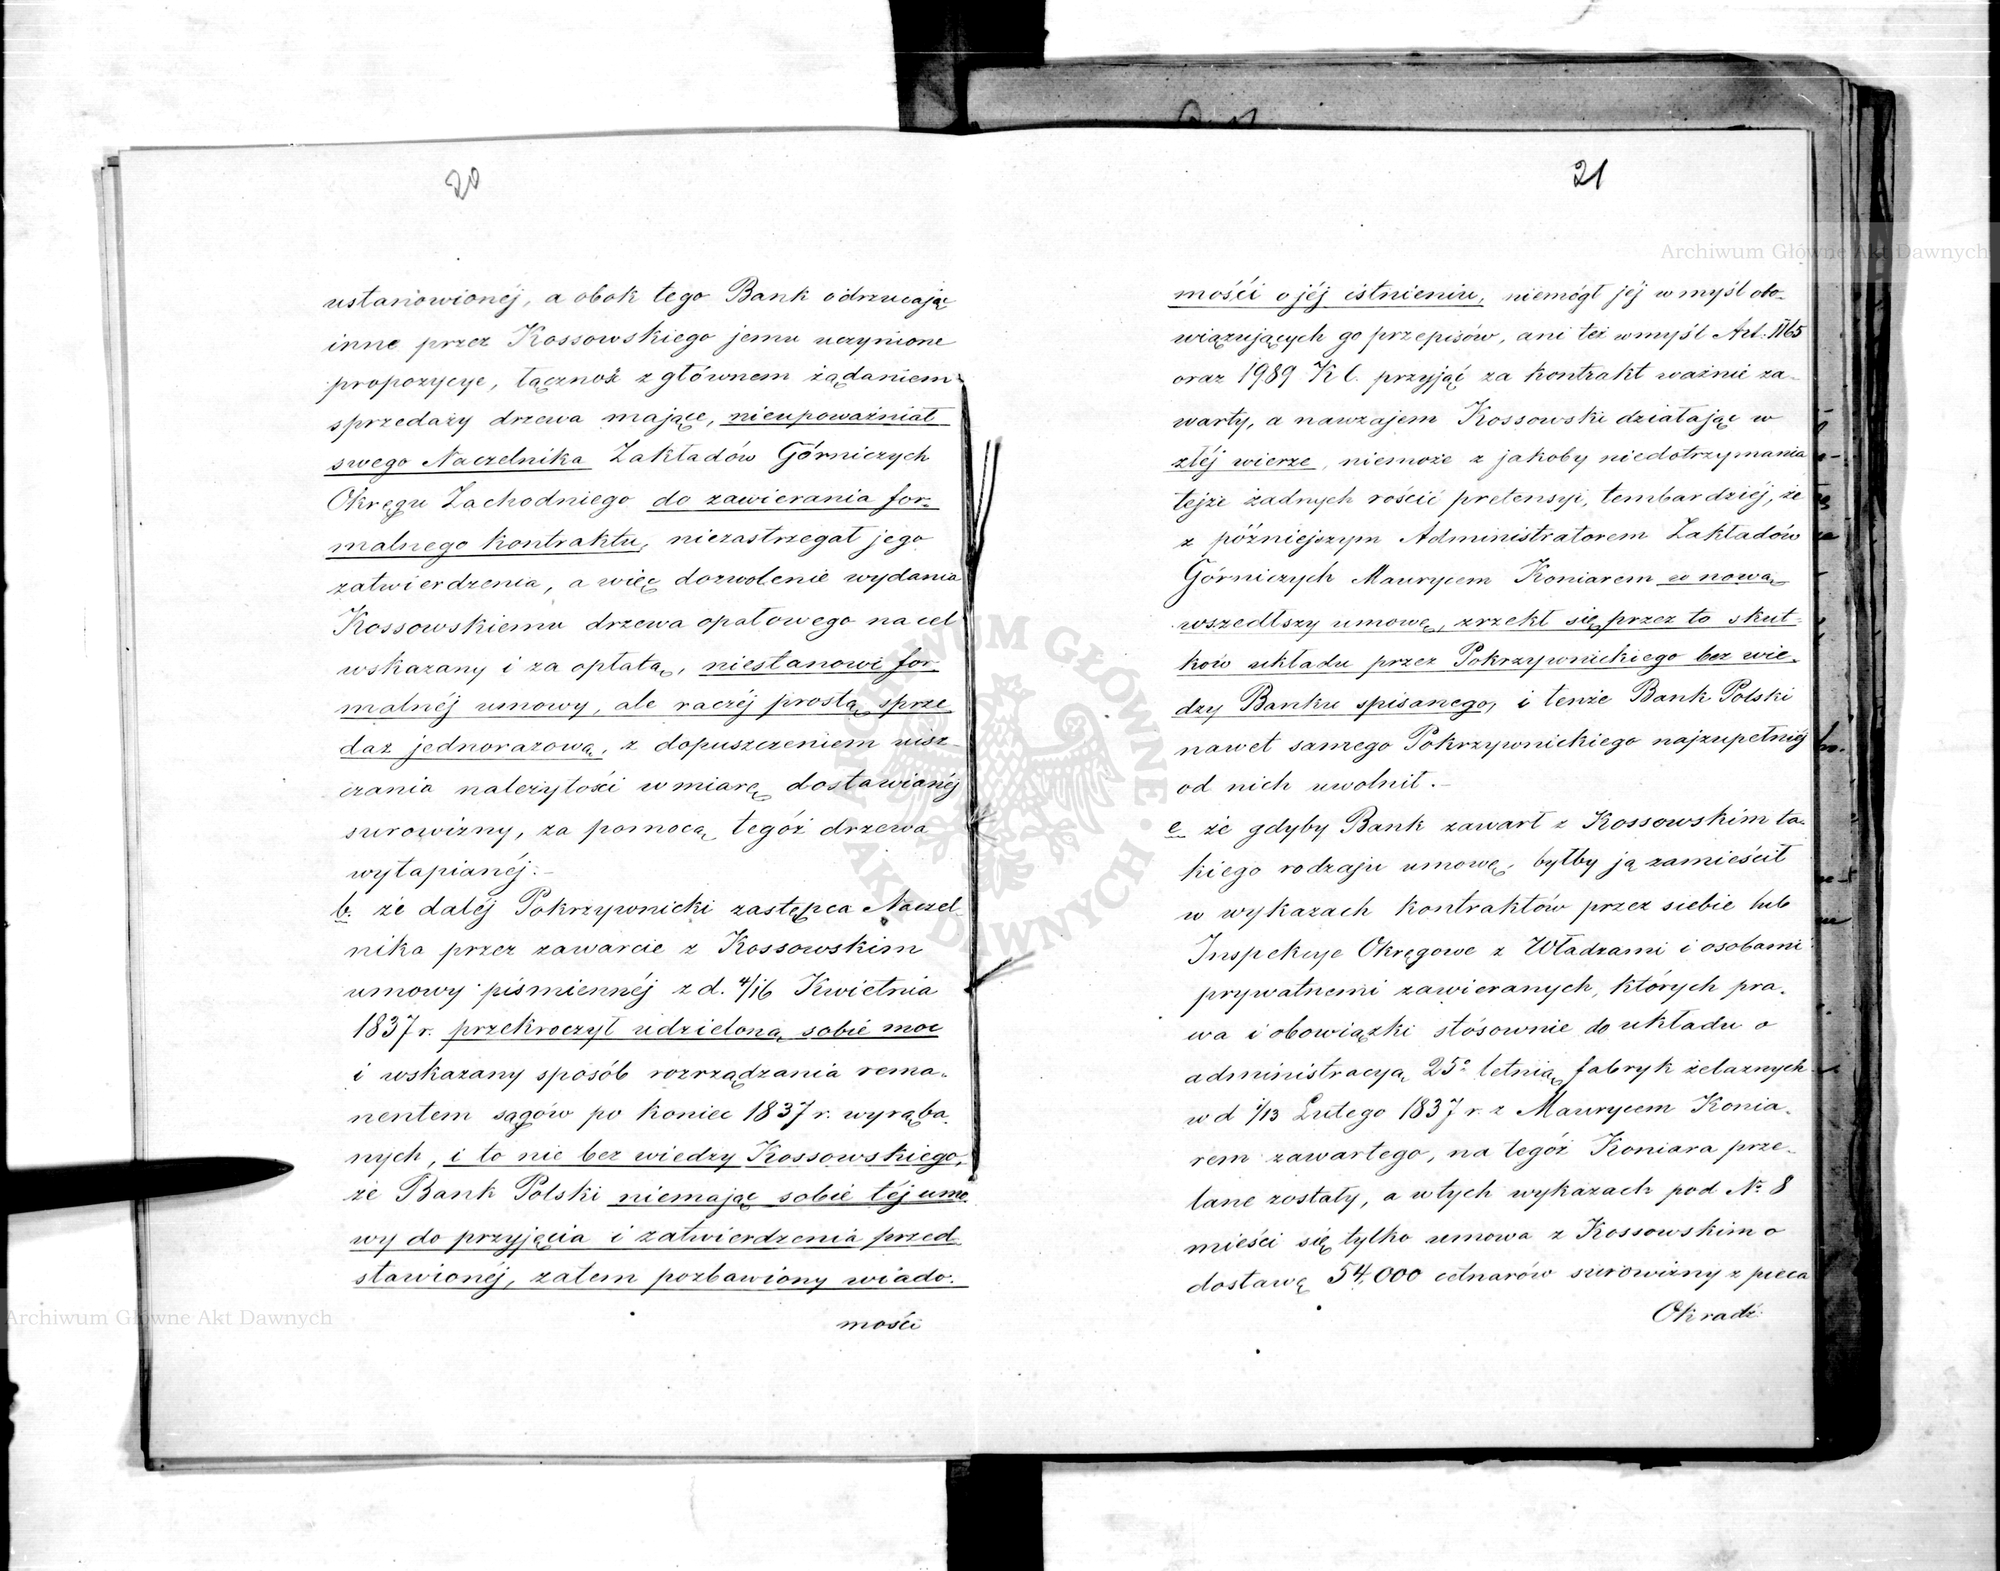 20
ustanowionéj, a obok tego Bank odrzucając
inne przez Kossowskiego jemu uczynione
propozycye, łączność z głównem żądaniem
sprzedaży drzewa mające, nieupoważniał
swego Naczelnika Zakładów Górniczych
Okręgu Zachodniego do zawierania for-
malnego kontraktu, niezastrzegał jego
zatwierdzenia, a więc dozwolenie wydania
Kossowskiemu drzewa opałowego na cel
wskazany i za opłatą, niestanowi for-
malnéj umowy, ale raczéj prostą sprze
daż jednorazową, z dopuszczeniem uisz-
czania należytości w miarę dostawianéj
surowizny, za pomocą tegóż drzewa
wytapianéj.–
b. że daléj Pokrzywnicki zastępca Naczel-
nika przez zawarcie z Kossowskim
umowy piśmiennéj z d. 4/16 Kwietnia
1837 r. przekroczył udzieloną sobie moc
i wskazany sposób rozrządzania rema-
nentem sągów po koniec 1837 r. wyrąba-
nych, i to nie bez wiedzy Kossowskiego,
że Bank Polski niemając sobie téj umo-
wy do przyjęcia i zatwierdzenia przed-
stawionéj, zatem pozbawiony wiado-
mości
21
mości o jéj istnieniu, niemógł jéj w myśl obo-
wiązujących go przepisów, ani też w myśl Art. 1165
oraz 1989 K C. przyjąć za kontrakt ważnie za-
warty, a nawzajem Kossowski działając w
złéj wierze, niemoże z jakoby niedotrzymania
tejże żadnych rościć pretensyi, tembardziéj, że
z późniejszym Administratorem Zakładów
Górniczych Maurycem Koniarem w nową
wszedłszy umowę, zrzekł się przez to skut-
ków układu przez Pokrzywnickiego bez wie-
dzy Banku spisanego, i tenże Bank Polski
nawet samego Pokrzywnickiego najzupełniéj
od nich uwolnił.–
c. że gdyby Bank zawarł z Kossowskim ta-
kiego rodzaju umowę, byłby ją zamieścił
w wykazach kontraktów przez siebie lub
Inspekcye Okręgowe z Władzami i osobami
prywatnemi zawieranych, których pra-
wa i obowiązki stósownie do układu o
administracyą 25o letnią fabryk żelaznych
w d 1/13 Lutego 1837 r. z Maurycem Konia-
rem zawartego, na tegóż Koniara prze-
lane zostały, a w tych wykazach pod No 8
mieści się tylko umowa z Kossowskim o
dostawę 54,000 cetnarów surowizny z pieca
Okradź.
Archiwum Główne Akt Dawnych
Archiwum Główne Akt Dawnych
ARCHIWUM GŁÓWNE · AKT DAWNYCH ·